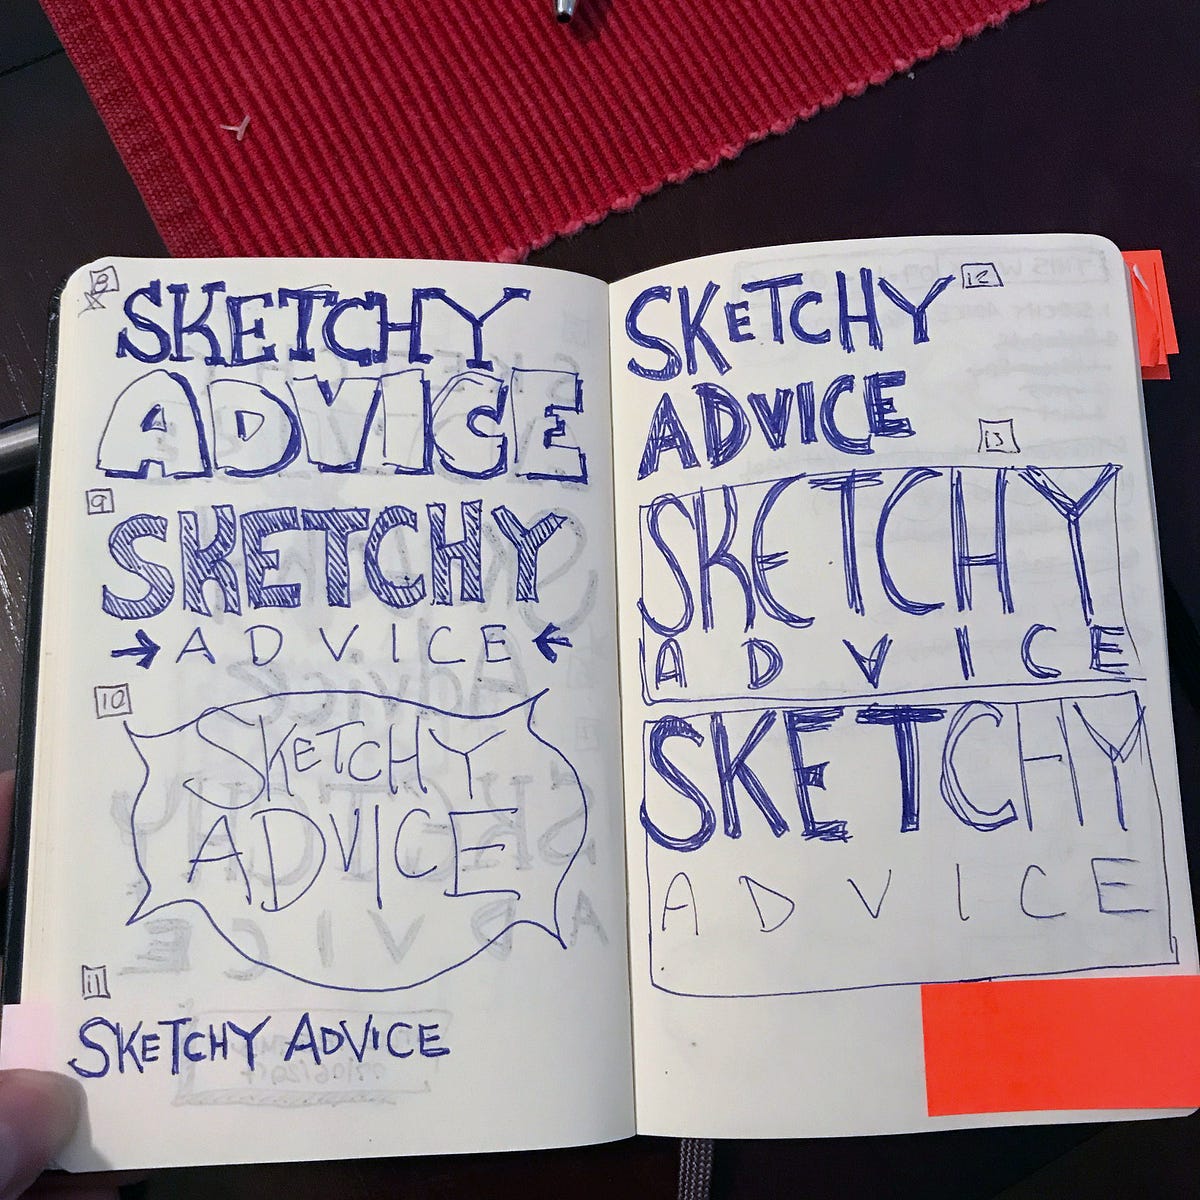 8
SKETCHY
ADVICE
9
SKETCHY
→ ADVICE ←
10
SKETCHY
ADVICE
11
SKETCHY ADVICE
12
SKETCHY
ADVICE
13
SKETCHY
ADVICE
SKETCHY
ADVICE